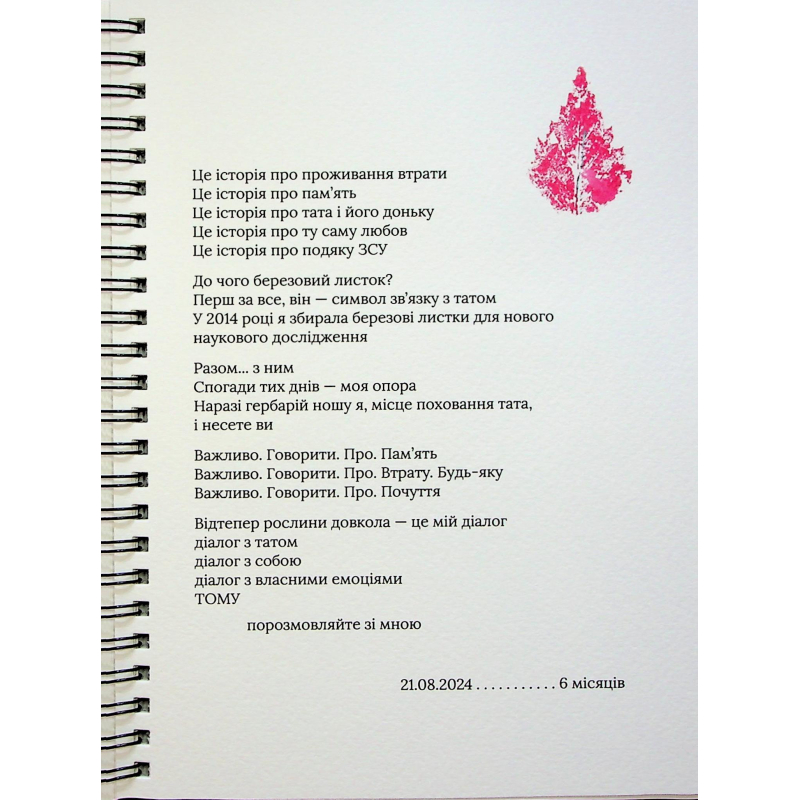 Це історія про проживання втрати
Це історія про пам’ять
Це історія про тата і його доньку
Це історія про ту саму любов
Це історія про подяку ЗСУ
До чого березовий листок?
Перш за все, він — символ зв’язку з татом
У 2014 році я збирала березові листки для нового
наукового дослідження
Разом... з ним
Спогади тих днів — моя опора
Наразі гербарій ношу я, місце поховання тата,
і несете ви
Важливо. Говорити. Про. Пам’ять
Важливо. Говорити. Про. Втрату. Будь-яку
Важливо. Говорити. Про. Почуття
Відтепер рослини довкола — це мій діалог
діалог з татом
діалог з собою
діалог з власними емоціями
ТОМУ
порозмовляйте зі мною
21.08.2024 . . . . . . . . . . . 6 місяців